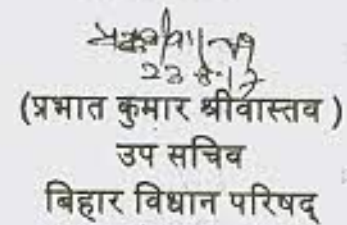 (प्रभात कुमार श्रीवास्तव )
उप सचिव
बिहार विधान परिषद्